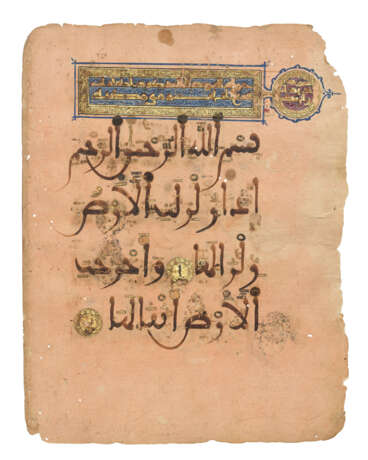 بسم الله الرحمن الرحيم
اذا زلزلت الارض
زلزالها واخرجت
الارض اثقالها